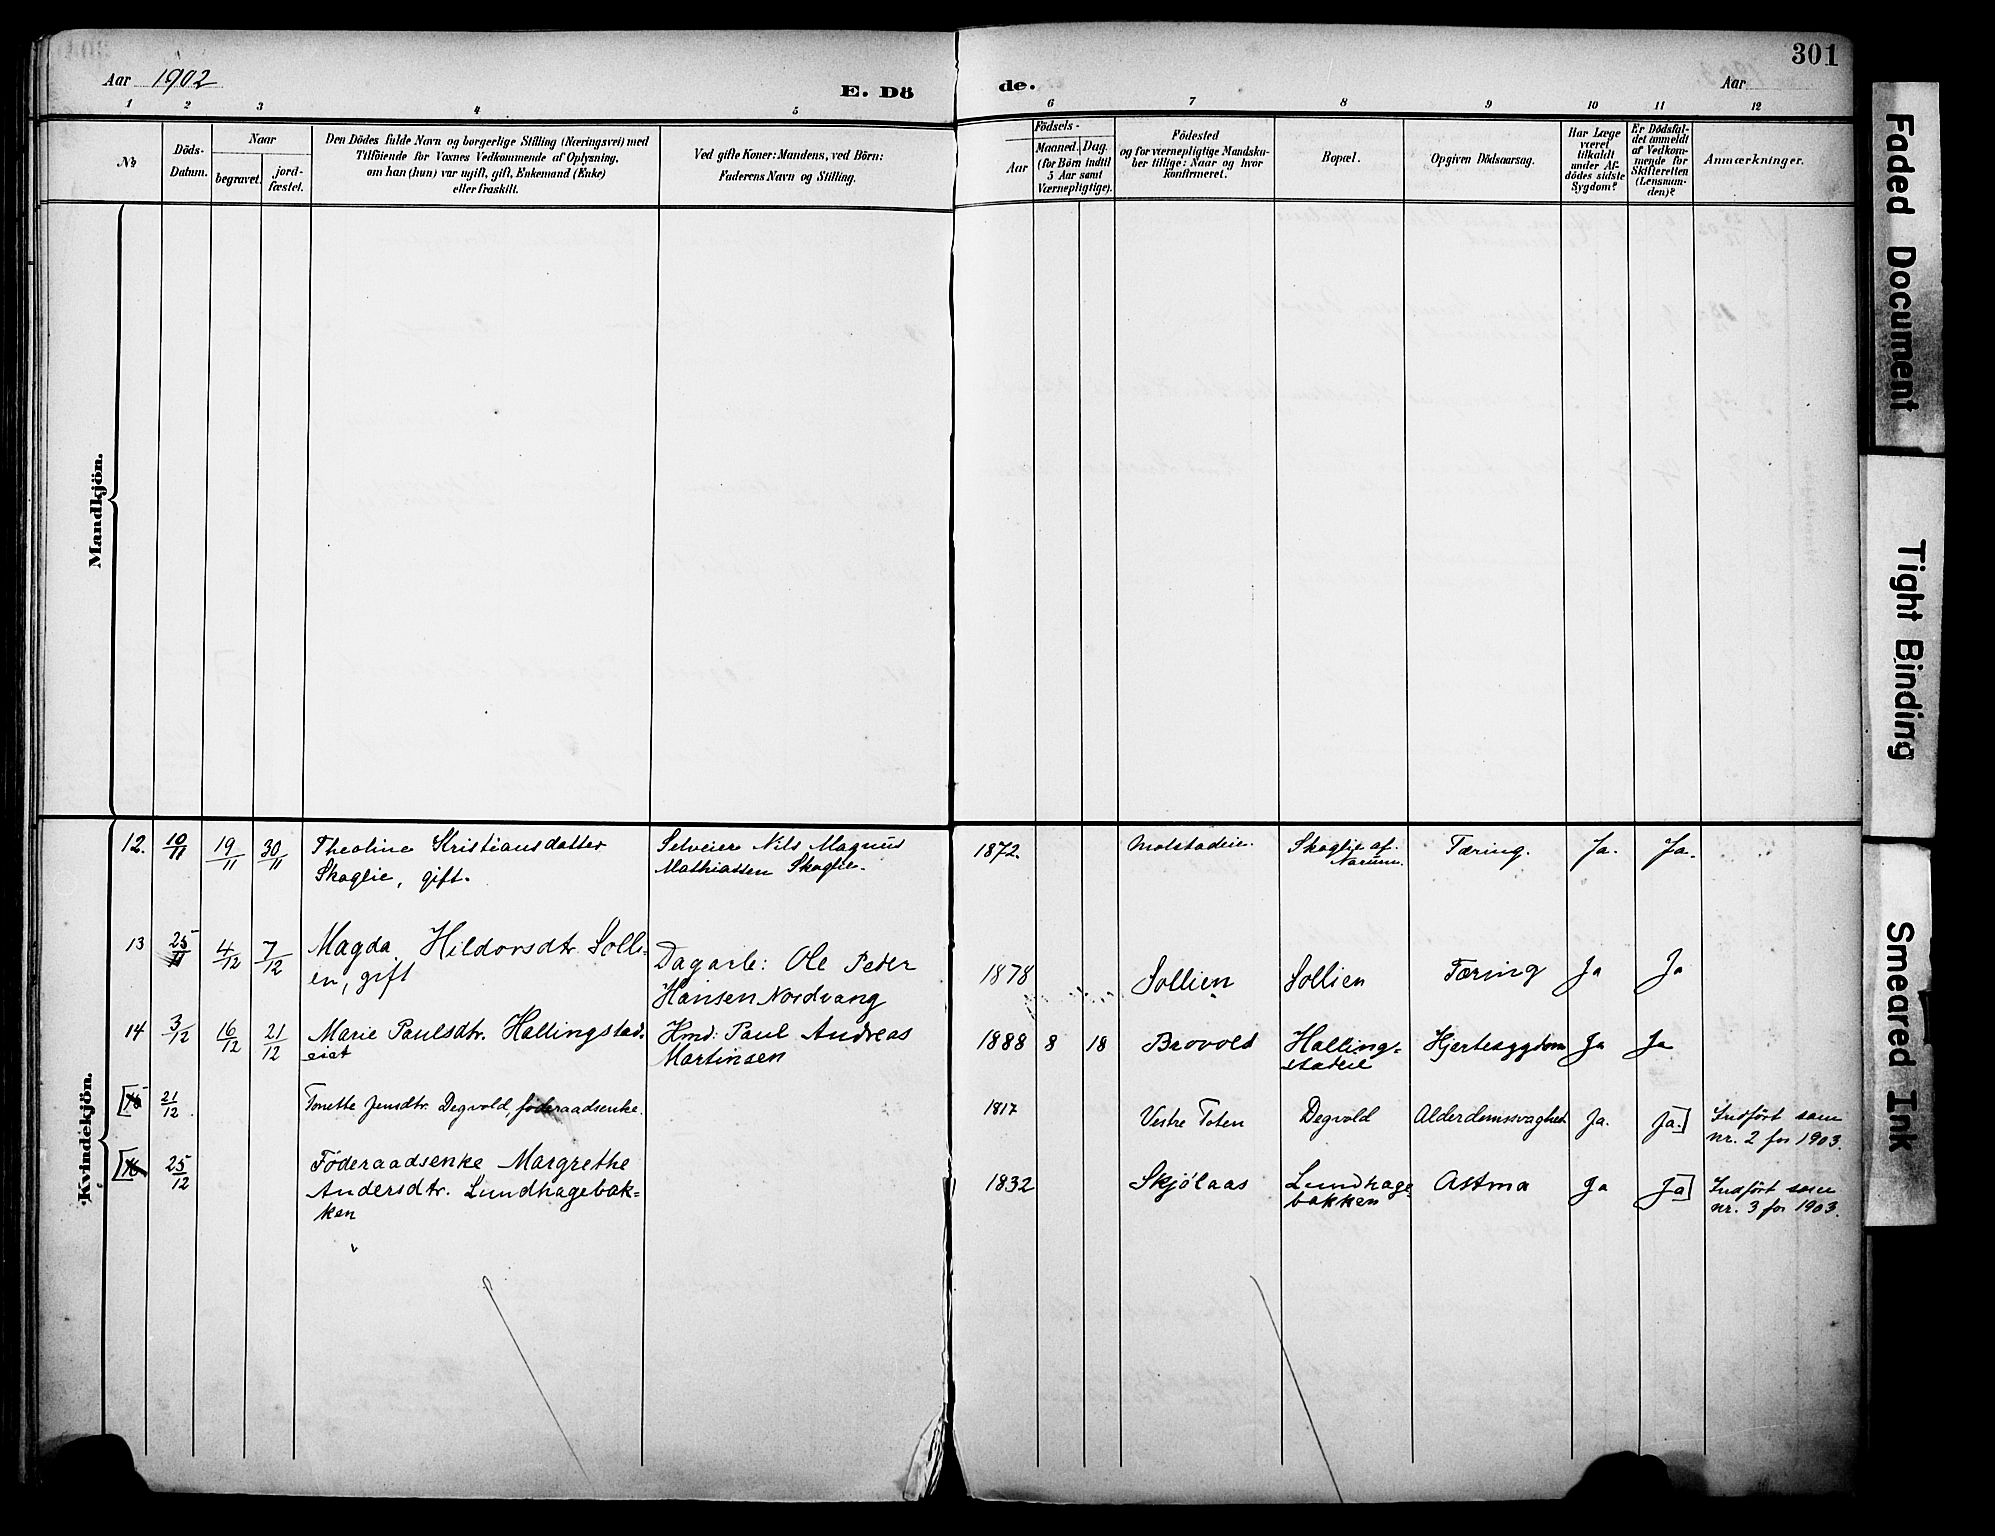 301
Aar 1902
E. Dö
de.
Aar
1 2 3 4 5 6 7 8 9 10 11 12
No
Döds-
Datum.
Naar
begravet.
jord-
fæstet.
Den Dödes fulde Navn og borgerlige Stilling (Næringsvei) med
Tilföiende for Voxnes Vedkommende af Oplysning,
om han (hun) var ugift, gift, Enkemand (Enke)
eller fraskilt.
Ved gifte Koner: Mandens, ved Börn:
Faderens Navn og Stilling.
Födsels-
Aar
Maaned. Dag.
(for Börn indtil
5 Aar samt
Værnepligtige).
Födested
og for værnepligtige Mandska-
ber tillige: Naar og hvor
konfirmeret.
Bopæl.
Opgiven Dödsaarsag.
Har Læge
været
tilkaldt
under Af-
dödes sidste
Sygdom?
Er Dödsfal-
det anmeldt
af Vedkom-
mende for
Skifteretten
(Lensman-
den)?
Anmærkninger.
Mandkjön.
Kvindekjön.
12. 10/11 19/11 30/11 Theoline Kristiansdatter Selveier Nils Magnus 1872. Molstadeie. Skoglie af Tæring. Ja. Ja.
Skoglie, gift. Mathiassen Skoglie. Narum.
13 25/11 4/12 7/12 Magda Hildorsdtr. Solli-
en, gift Dagarb: Ole Peder 1878 Sollien Sollien Tæring Ja Ja
Hansen Nordvang
14 3/12 16/12 21/12 Marie Paulsdtr. Hallingstad- Hmd: Paul Andreas 1888 8 18 Brovold Halling- Hjertesygdom Ja Ja
eiet Martinsen stadeie
[15 21/12 Tonette Jensdtr. Degvold, föderaadsenke. 1817 Vestre Toten Degvold Alderdomssvaghed Ja. Ja.] Indført som
nr. 2 for 1903.
[16 25/12 Föderaadsenke Margrethe 1832 Skjölaas Lundhage- Astma Ja Ja] Indført som
Andersdtr. Lundhagebak- bakken nr. 3 for 1903.
ken
Faded Document
Tight Binding
Smeared Ink